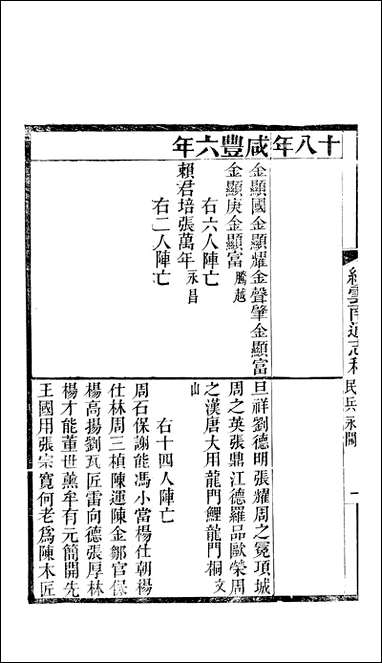 續雲南通志稿 民兵 永開 一
十八年
咸豐六年
金顯國金顯耀金聲肇金顯富
金顯庚金顯富 騰越
右六人陣亡
賴君培張萬年 永昌
右二人陣亡
旦祥劉德明張耀周之冕項城
周之英張鼎江德羅品歐榮周
之漢唐大用龍門鯉龍門桐 文
山
右十四人陣亡
周石保謝能馮小當楊仕朝楊
仕林周三楨陳運陳金鄒官保
楊高揚劉瓦匠雷向德張厚林
楊才能董世薰牟有元簡開先
王國用張宗寬何老爲陳木匠